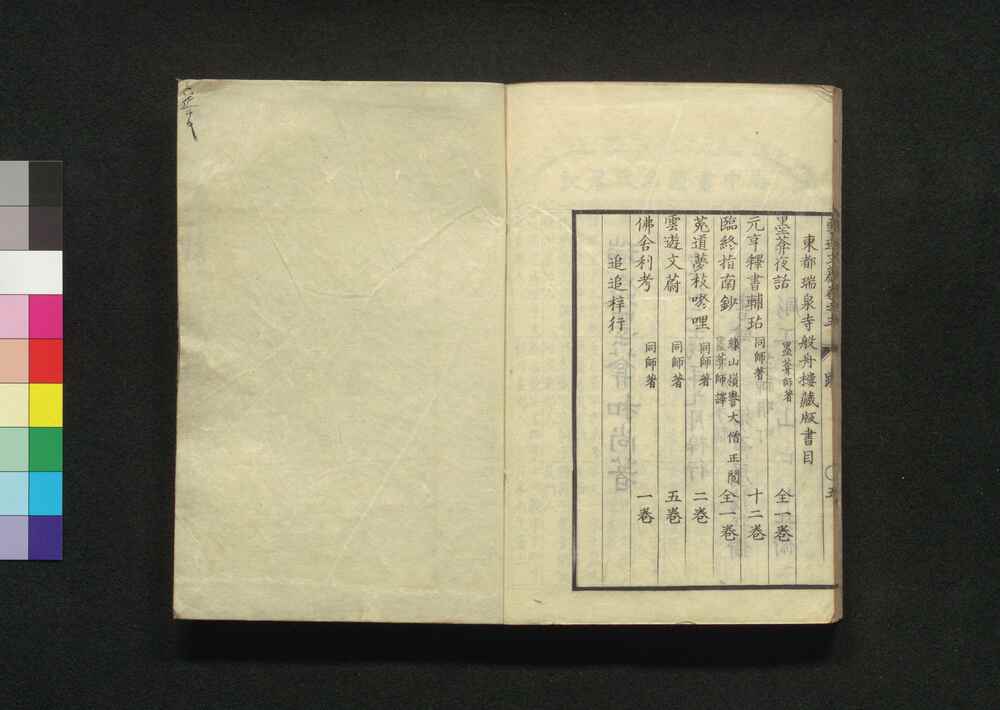 東都瑞泉寺般舟樓藏版書目
墨菴夜話 墨菴師著 全一巻
元亨釋書輔玷 同師著 十二巻
臨終指南鈔 縁山嶺譽大僧正閲 墨菴師譯 全一巻
菟道夢杖㗭哩 同師著 二巻
雲遊文蔚 同師著 五巻
佛舍利考 同師著 一巻
追追梓行